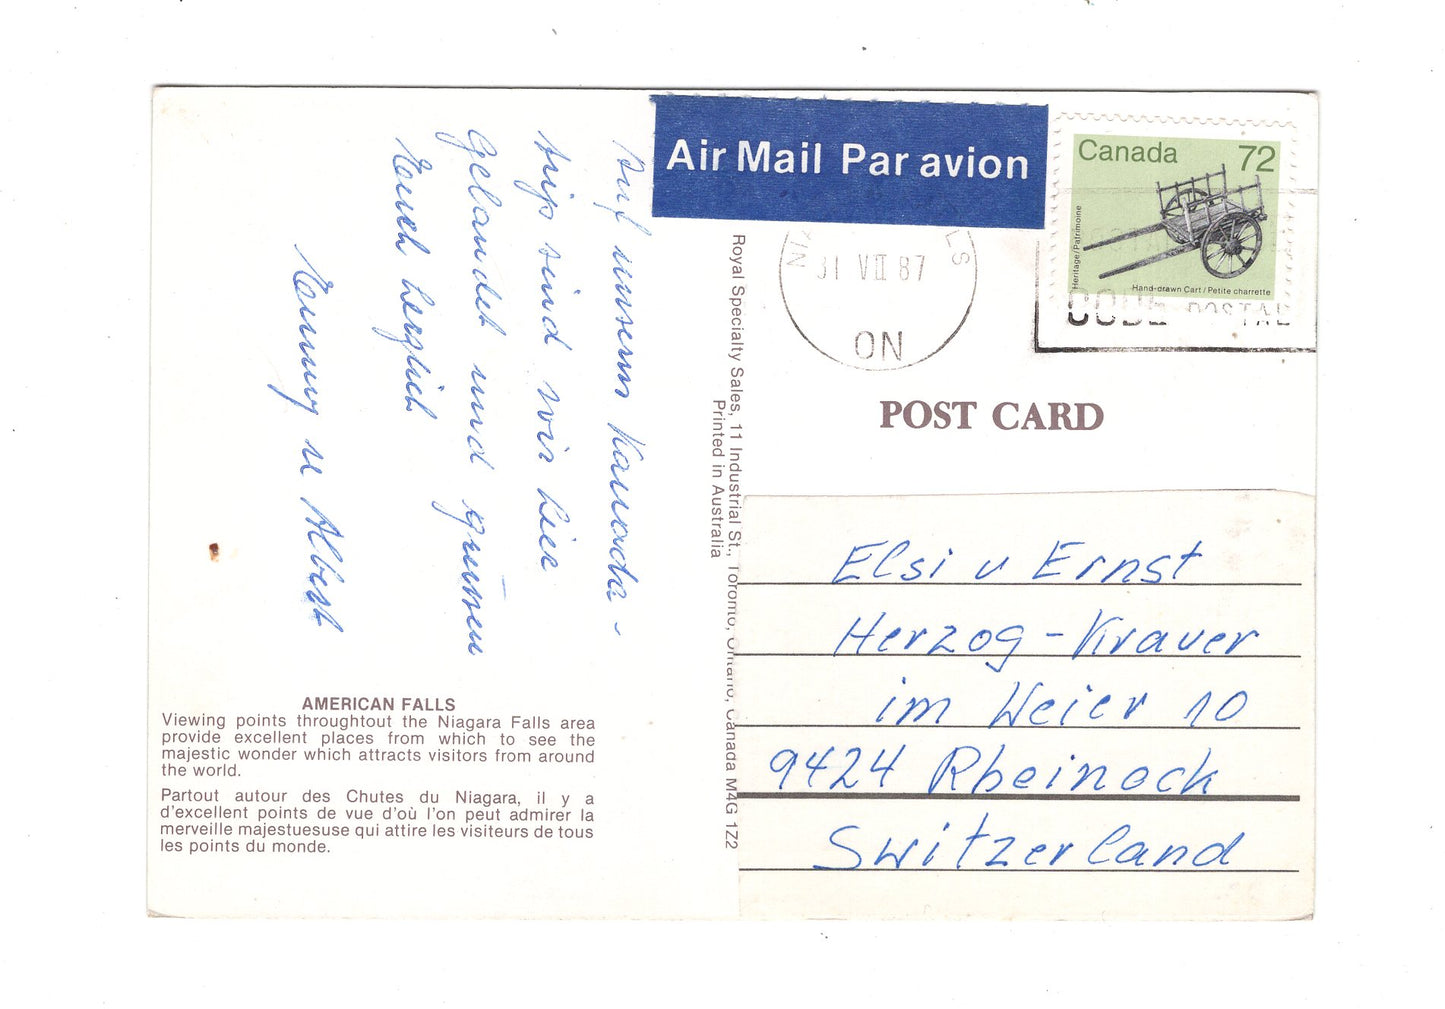 Air Mail Par avion
Canada 72
Heritage/Patrimoine
Hand-drawn Cart / Petite charrette
31 VII 87
ON
CODE POSTAL
POST CARD
Auf unserm Kanada-
trip sind wir hier
gelandet und grüssen
Euch herzlich
u Albert
Royal Specialty Sales, 11 Industrial St., Toronto, Ontario, Canada M4G 1Z2
Printed in Australia
Elsi u Ernst
Herzog-Krauer
im Weier 10
9424 Rheineck
Switzerland
AMERICAN FALLS
Viewing points throughtout the Niagara Falls area
provide excellent places from which to see the
majestic wonder which attracts visitors from around
the world.
Partout autour des Chutes du Niagara, il y a
d'excellent points de vue d'où l'on peut admirer la
merveille majestuesuse qui attire les visiteurs de tous
les points du monde.